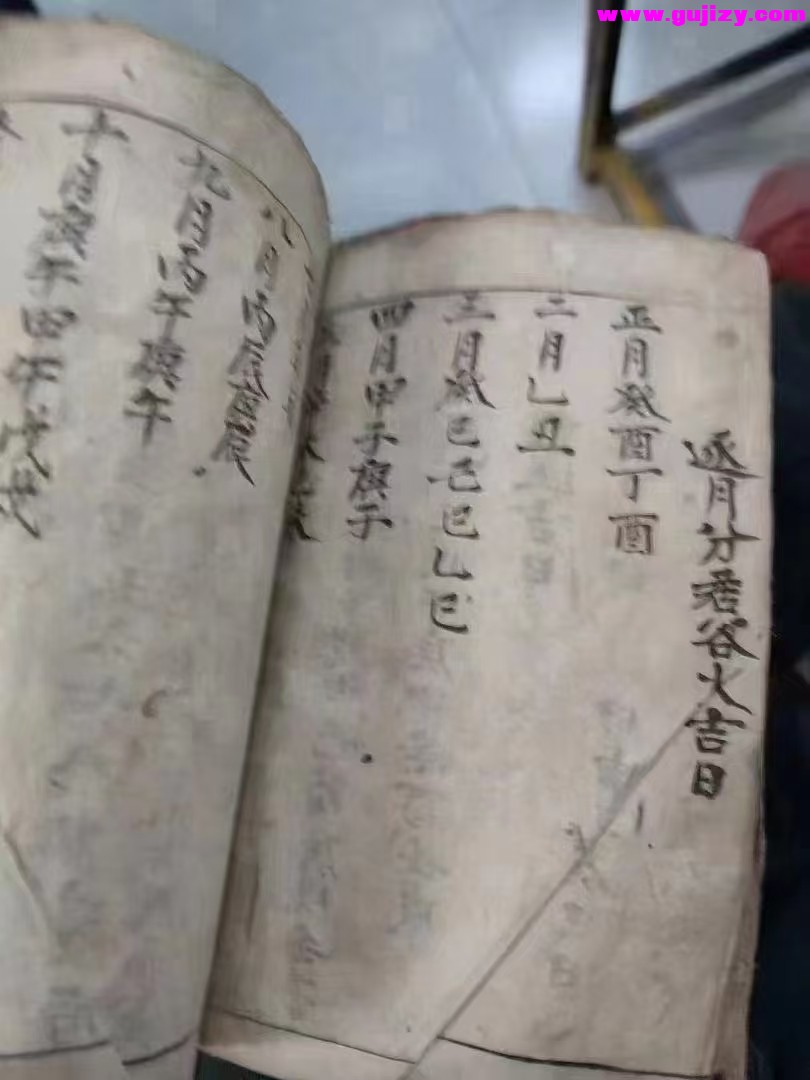 www.gujizy.com
逐月分居谷火吉日
正月癸酉丁酉
二月乙丑
三月癸巳己巳乙巳
四月甲子庚子
八月丙辰庚辰
九月丙午庚午
十月庚午甲午戊戌